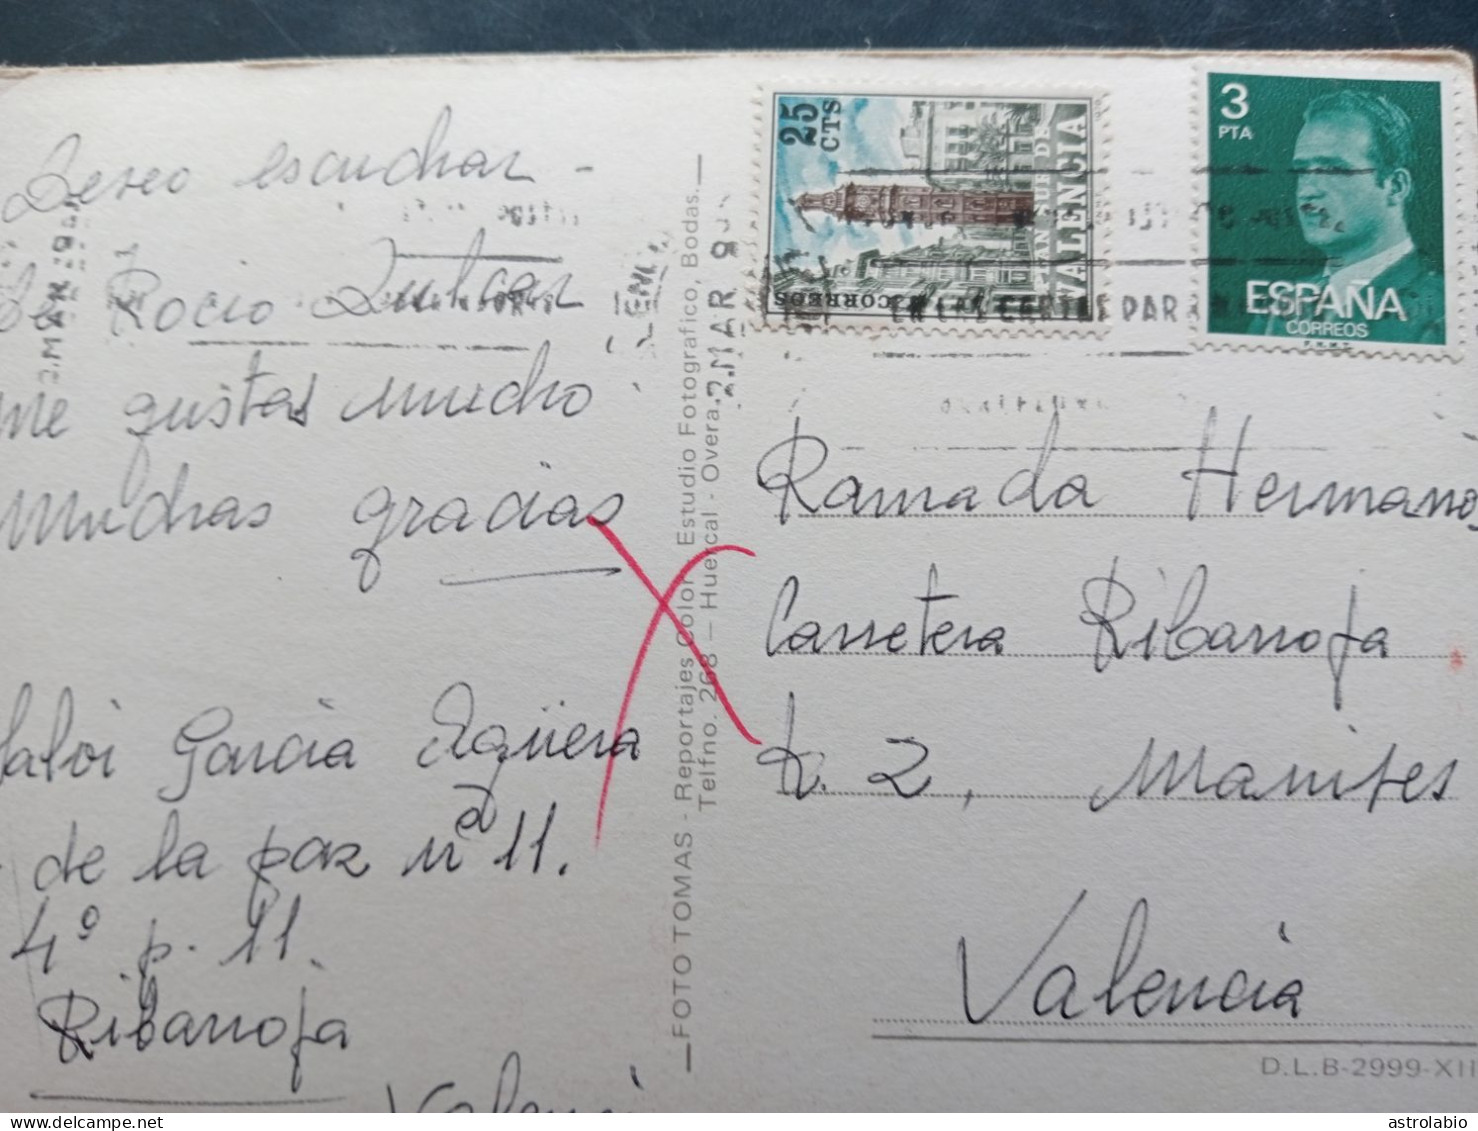 Deseo escuchar -
de Rocio Dulcar
me gustas mucho
muchas gracias
Garcia Agüera
de la paz nº 11.
4º p. 11.
Ribarroja
Valenci
—FOTO TOMAS - Reportajes Color - Estudio Fotografico, Bodas.—
Telfno. 268 — Huercal - Overa.
2.MAR
25
CTS
CORREOS
VALENCIA
3
PTA
ESPAÑA
CORREOS
F.N.M.T.
EN LAS CARTAS PAR
Ramada Hermanos
Carretera Ribarroja
K. 2, Manises
Valencia
D.L.B-2999-XII
astrolabio